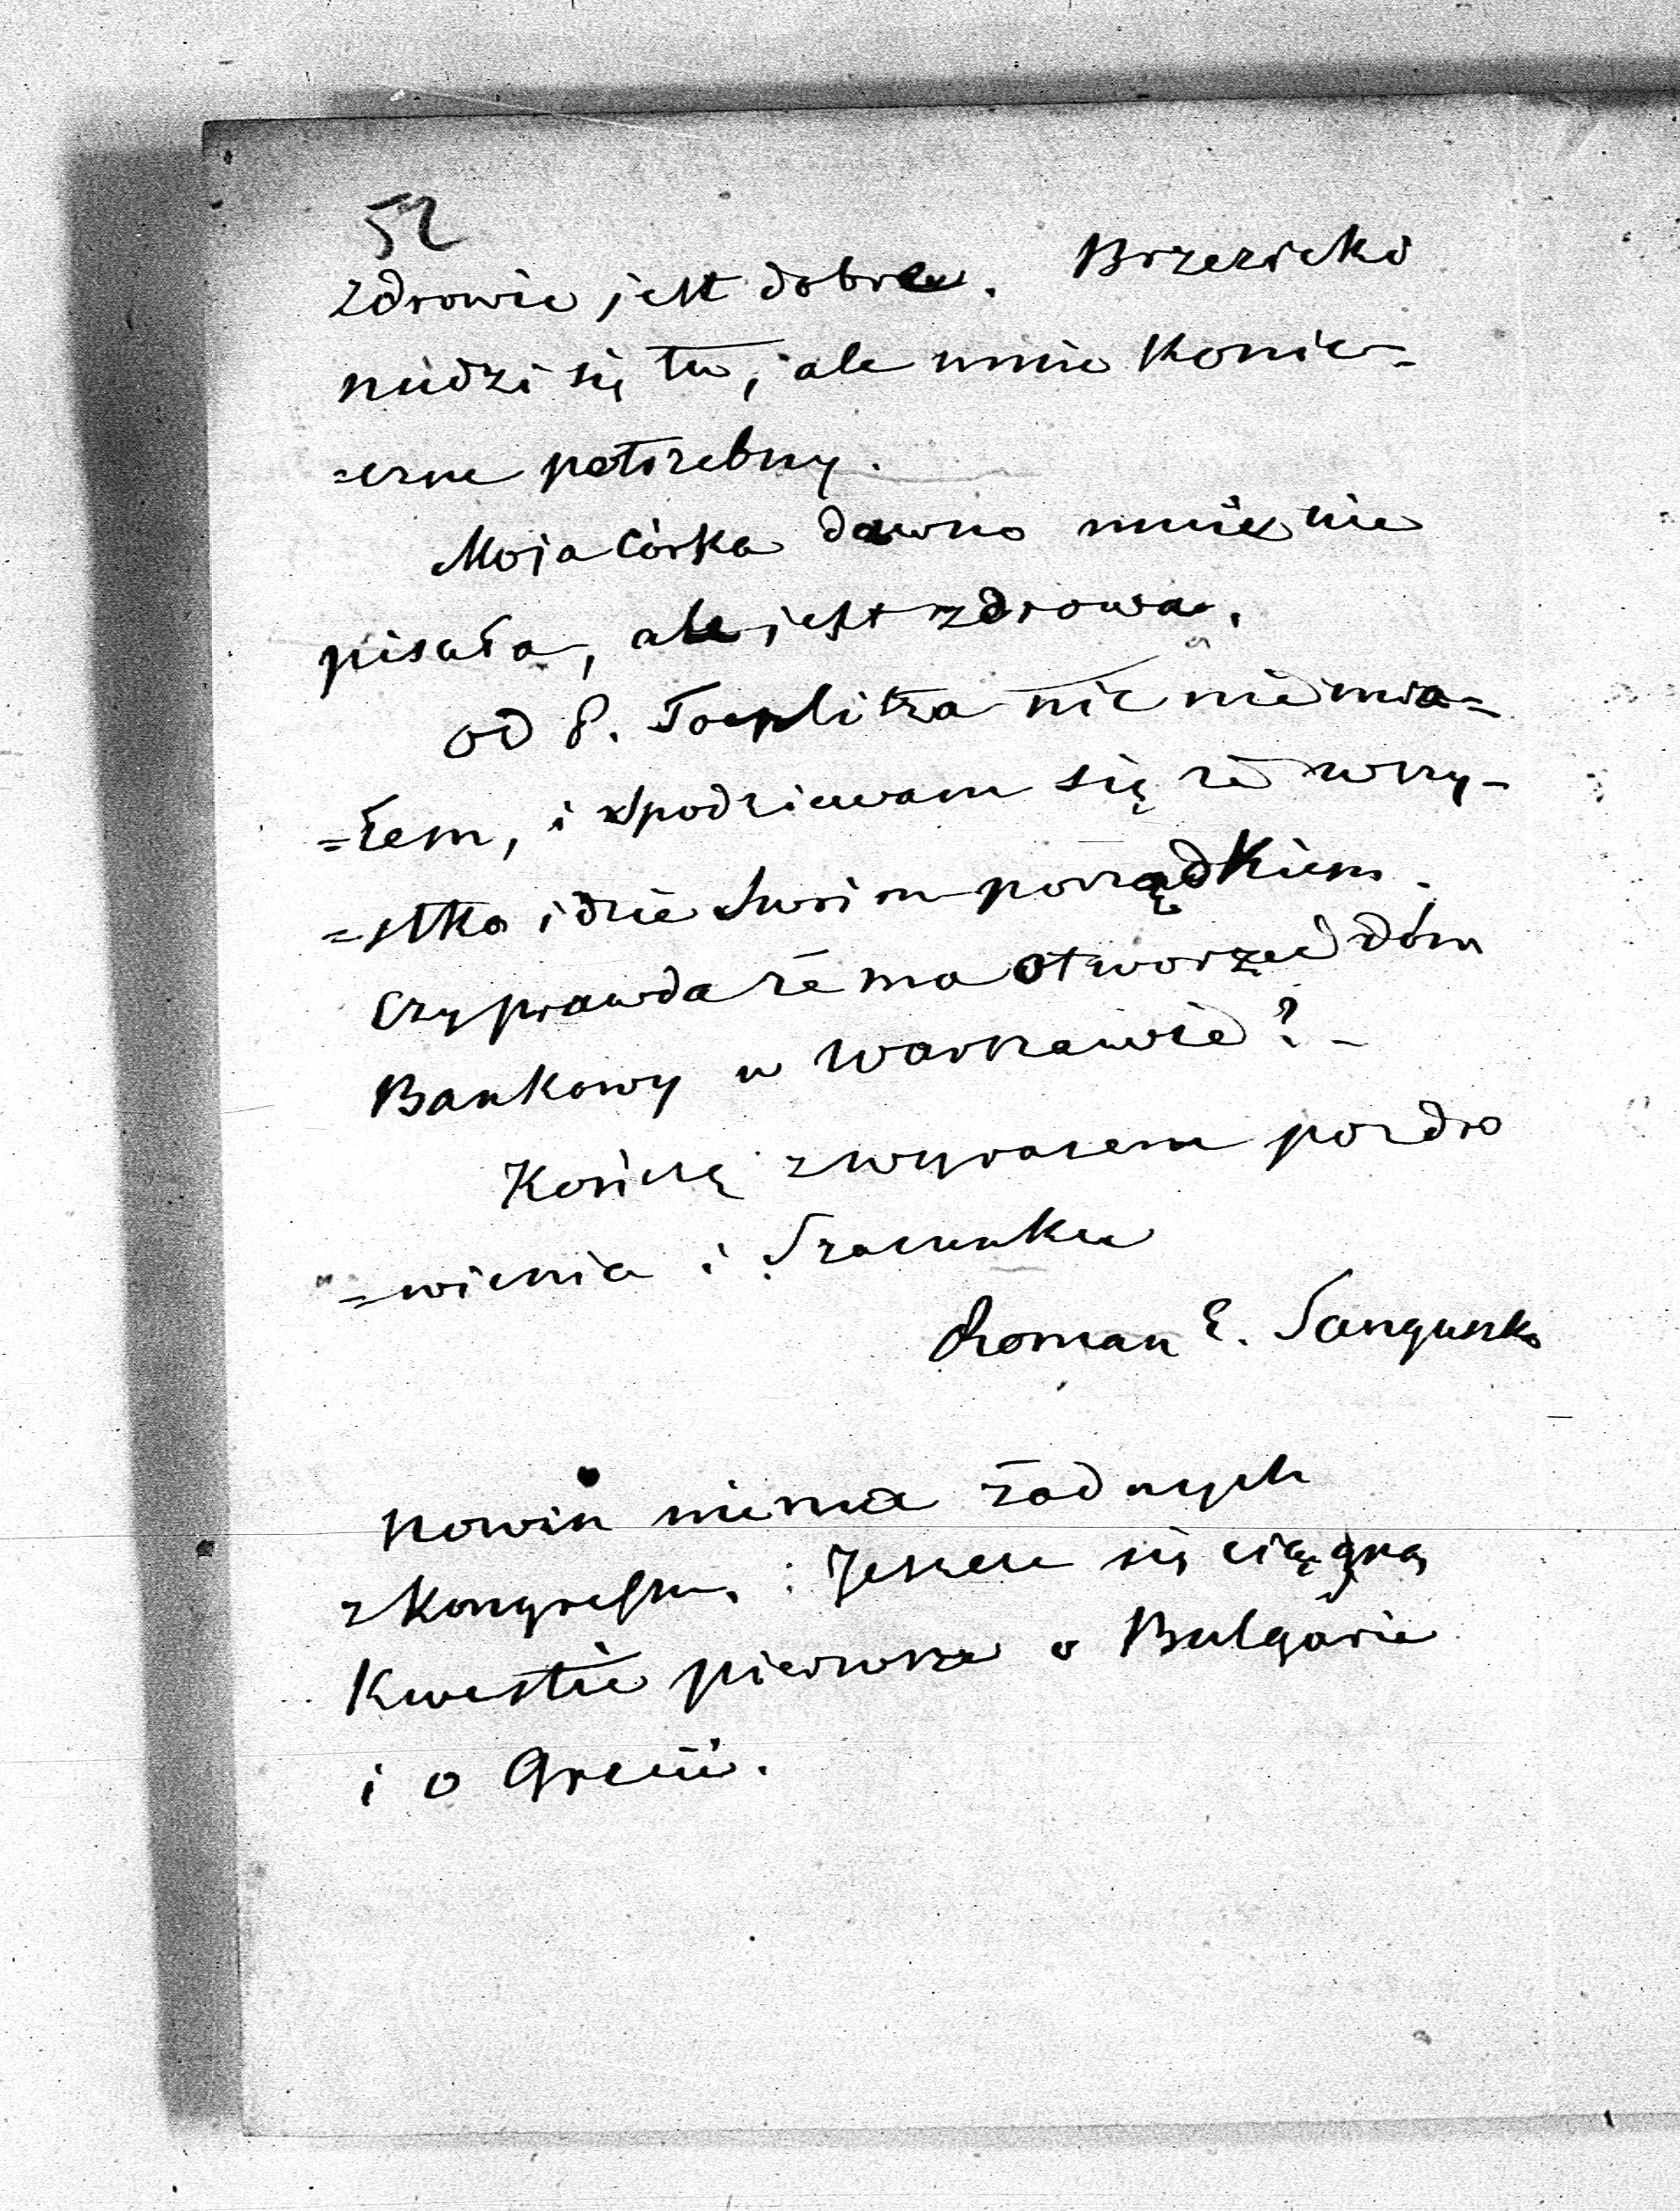 52
zdrowie jest dobre. Brzezicki
nudzi się tu, ale mnie konie-
=czne potrzebny.
Moja Córka dawno mnie nie
pisała, ale jest zdrowa.
Od P. Toeplitza nic nie mia=
=łem, i spodziewam się że wszy-
=stko idzie swoim porządkiem.
Czy prawda że ma otworzeć dóm
Bankowy w Warszawie? -
Kończę z wyrazem pozdro
=wienia i Szacunku
Roman E. Sanguszko
Nowin niema żadnych
z Kongressu. Jeszcze się ciągną
Kwestie pierwsze o Bulgarie
i o Grecii.